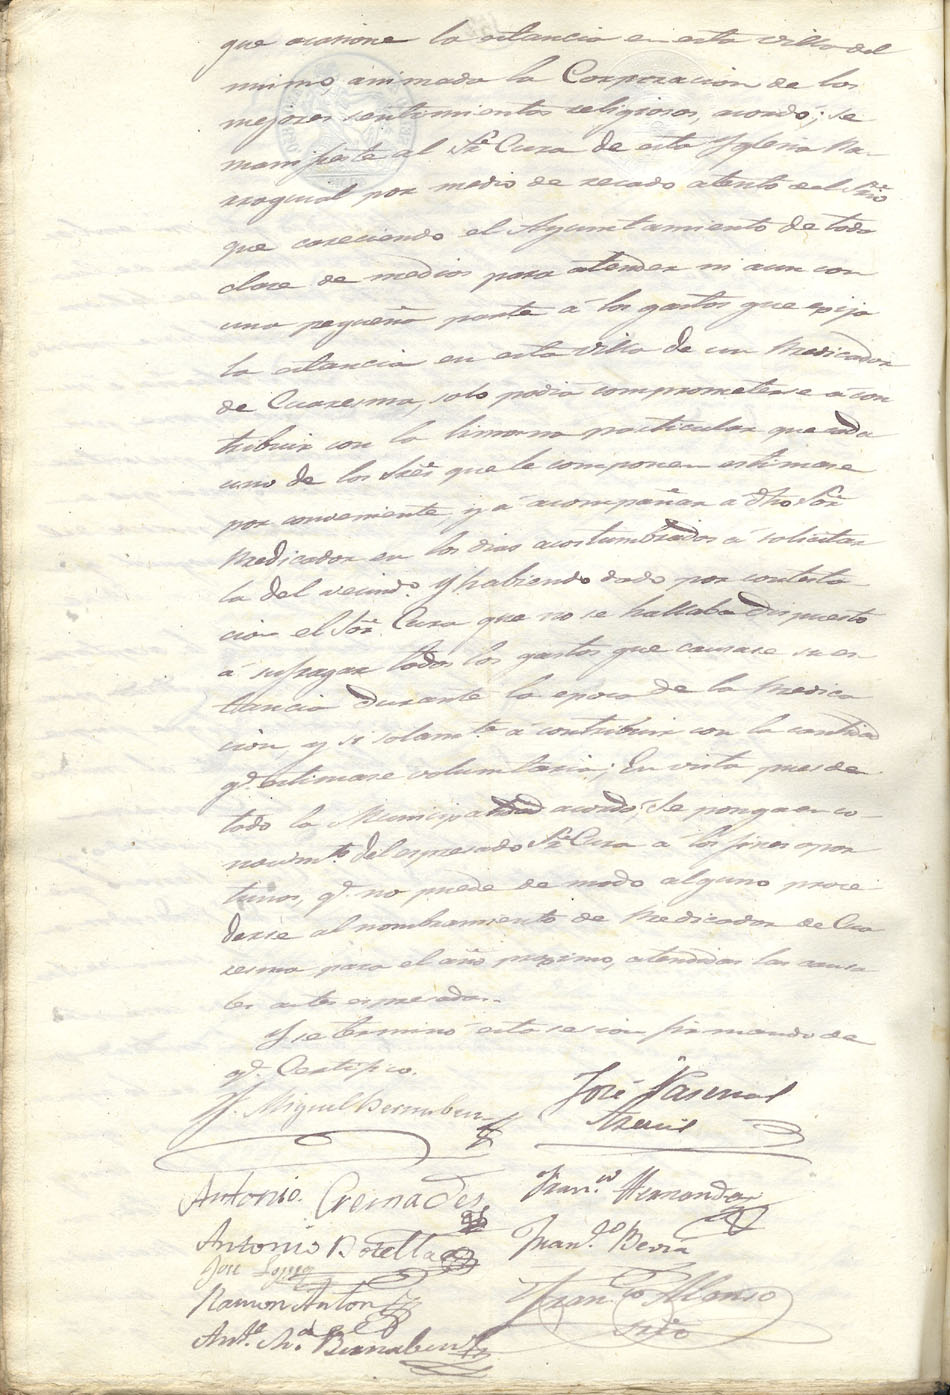 que ocasione la estancia en esta villa del
mismo, animada la Corporacion de los
mejores sentimientos religiosos, acordó; se
manifieste al Sr. Cura de esta Yglesia Pa-
rroquial por medio de recado atento del Srio
que careciendo el Ayuntamiento de toda
clase de medios para atender ni aun con
una pequeña parte á los gastos que exija
la estancia en esta villa de un Predicador
de Cuaresma, solo podia comprometerse á con
tribuir con la limosna particular que cada
uno de los Sres que le componen estimase
por conveniente, y á acompañar a dho Sor
Predicador en los dias acostumbrados á solicitar
la del vecindo. Y habiendo dado por contesta
cion el Sor. Cura que no se hallaba dispuesto
á sufragar todos los gastos que causase su es
tancia durante la epoca de la Predica
cion, y si solamte. á contribuir con la cantidad
qe. estimase voluntaria; En vista pues de
todo la Municipalidad acordó, Se ponga en co-
nocimto. del espresado Sr. Cura á los fines opor
tunos, qe. no puede de modo alguno proce
derse al nombramiento de Predicador de Cua
resma para el año proximo, atendidas las causa
les antes espresadas.-
Y se terminó esta sesion firmando de
qe. Certifico.
Miguel Bernabeu
José Pascual
Antonio Cremades
Franco. Hernandez
Antonio Botella
Franco. Berná
José
Ramon Anton
Franco. Alfonso
Srio
Anto. Ma. Bernabeu